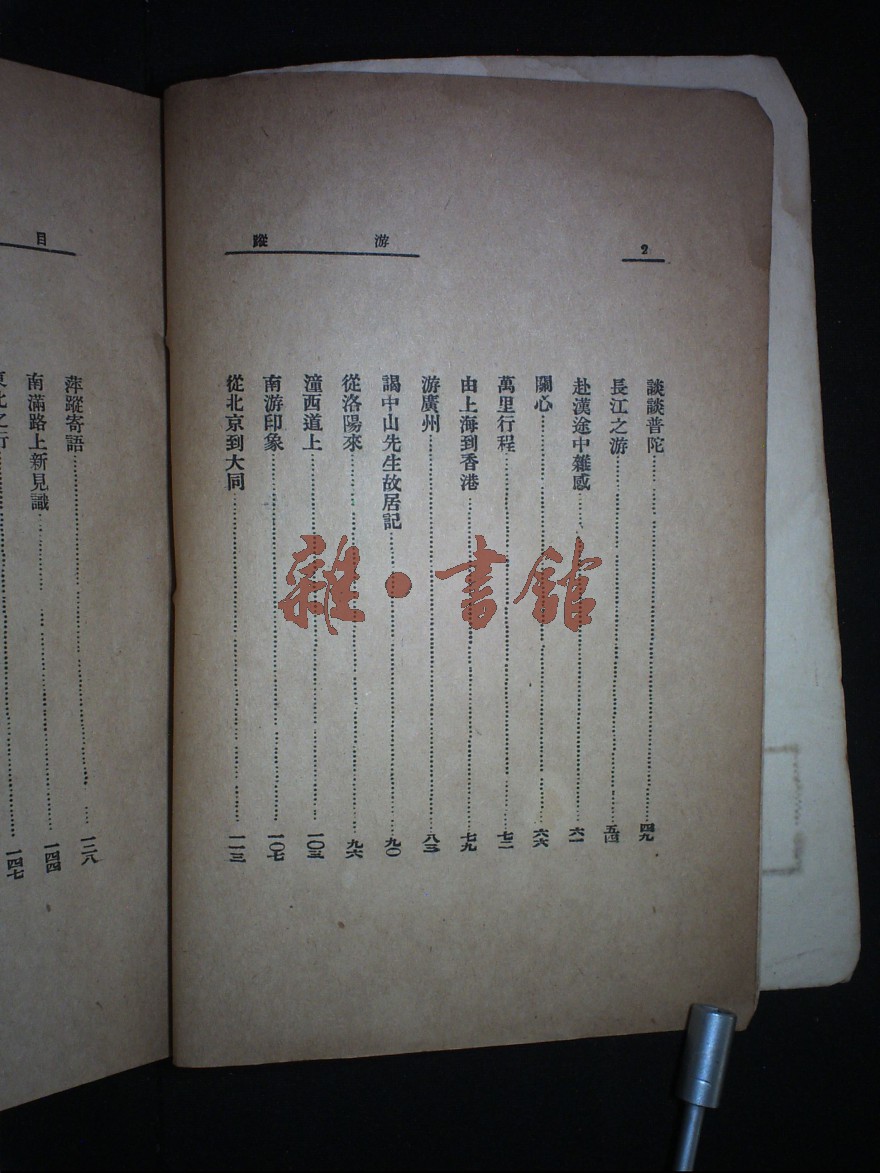 2
游蹤
談談普陀……四九
長江之游……五四
赴漢途中雜感……六一
關心……六六
萬里行程……七二
由上海到香港……七九
游廣州……八三
謁中山先生故居記……九〇
從洛陽來……九六
潼西道上……一〇三
南游印象……一〇七
從北京到大同……一一三
目
萍蹤寄語……一二八
南滿路上新見識……一四四
東北之行……一四七
雜·書館